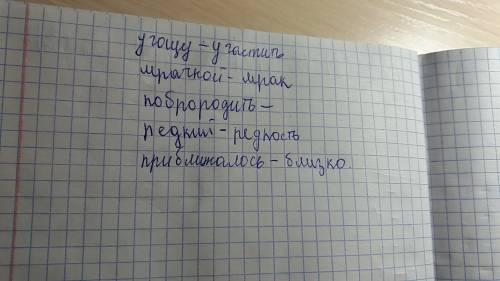 угощу – угостить
мрачной – мрак
поброродить –
редкий – редкость
приближалось – близко.